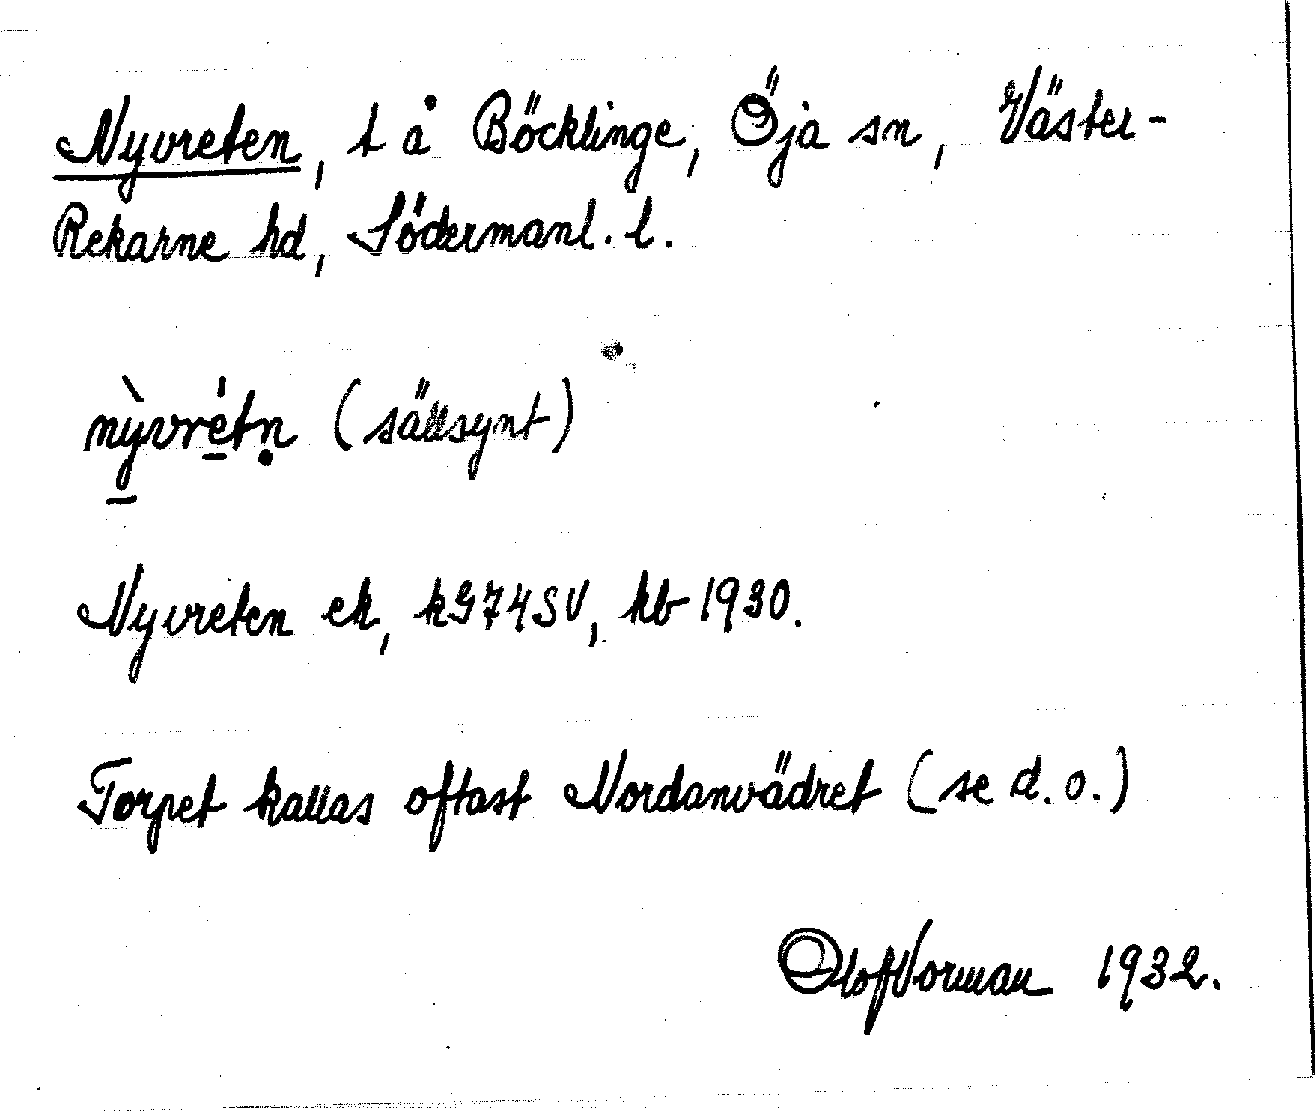 Nyvreten, t å Böcklinge, Öja sn, Väster-
Rekarne hd, Södermanl. l.
nỳvrétṇ (sällsynt)
Nyvreten ek, kG74SV, kb 1930.
Torpet kallas oftast Nordanvädret (se d. o.)
Olof Norman 1932.